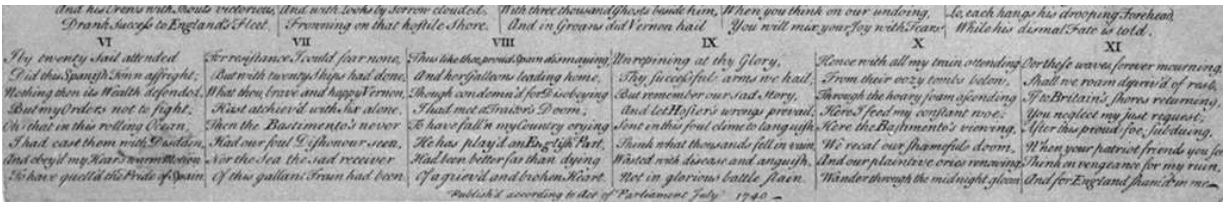 And his Crews with Shouts victorious,
Drank Success to England's Fleet.
And with Looks by Sorrow clouded,
Frowning on that hostile Shore.
With three thousand Ghosts beside him,
And in Groans did Vernon hail
When you think on our undoing,
You will mix your Joy with Tears
Lo, each hangs his drooping Forehead,
While his dismal Fate is told.
VI
I by twenty Sail attended
Did this Spanish Town affright;
Nothing then its Wealth defended,
But my Orders not to fight;
Oh! that in this rolling Ocean,
I had cast them with Disdain,
And obey'd my Heart's warm Motion
To have quell'd the Pride of Spain
VII
For resistance I could fear none,
But with twenty Ships had done,
What thou, brave and happy Vernon,
Hast atchiev'd with Six alone.
Then the Bastimento's never
Had our foul Dishonour seen,
Nor the Sea the sad receiver
Of this gallant Train had been
VIII
Thus like thee, proud Spain dismaying,
And her Galleons leading home,
Though condemn'd for Disobeying
I had met a Traitor's Doom;
To have fall'n my Country crying
He has play'd an English Part,
Had been better far than dying
Of a griev'd and broken Heart
IX
Unrepining at thy Glory,
Thy successful arms we hail;
But remember our sad Story,
And let Hosier's wrongs prevail;
Sent in this foul clime to languish
Think what thousands fell in vain,
Wasted with disease and anguish,
Not in glorious battle slain
X
Hence with all my train attending
From their oozy tombs below,
Through the hoary foam ascending
Here I feed my constant woe;
Here the Bastimento's viewing,
We recal our shameful doom,
And our plaintive cries renewing
Wander through the midnight gloom
XI
Oer these waves forever mourning
Shall we roam depriv'd of rest,
If to Britain's shores returning
You neglect my just request;
After this proud foe subduing,
When your patriot friends you see
Think on vengeance for my ruin,
And for England sham'd in me
Publish'd according to Act of Parliament July 1740